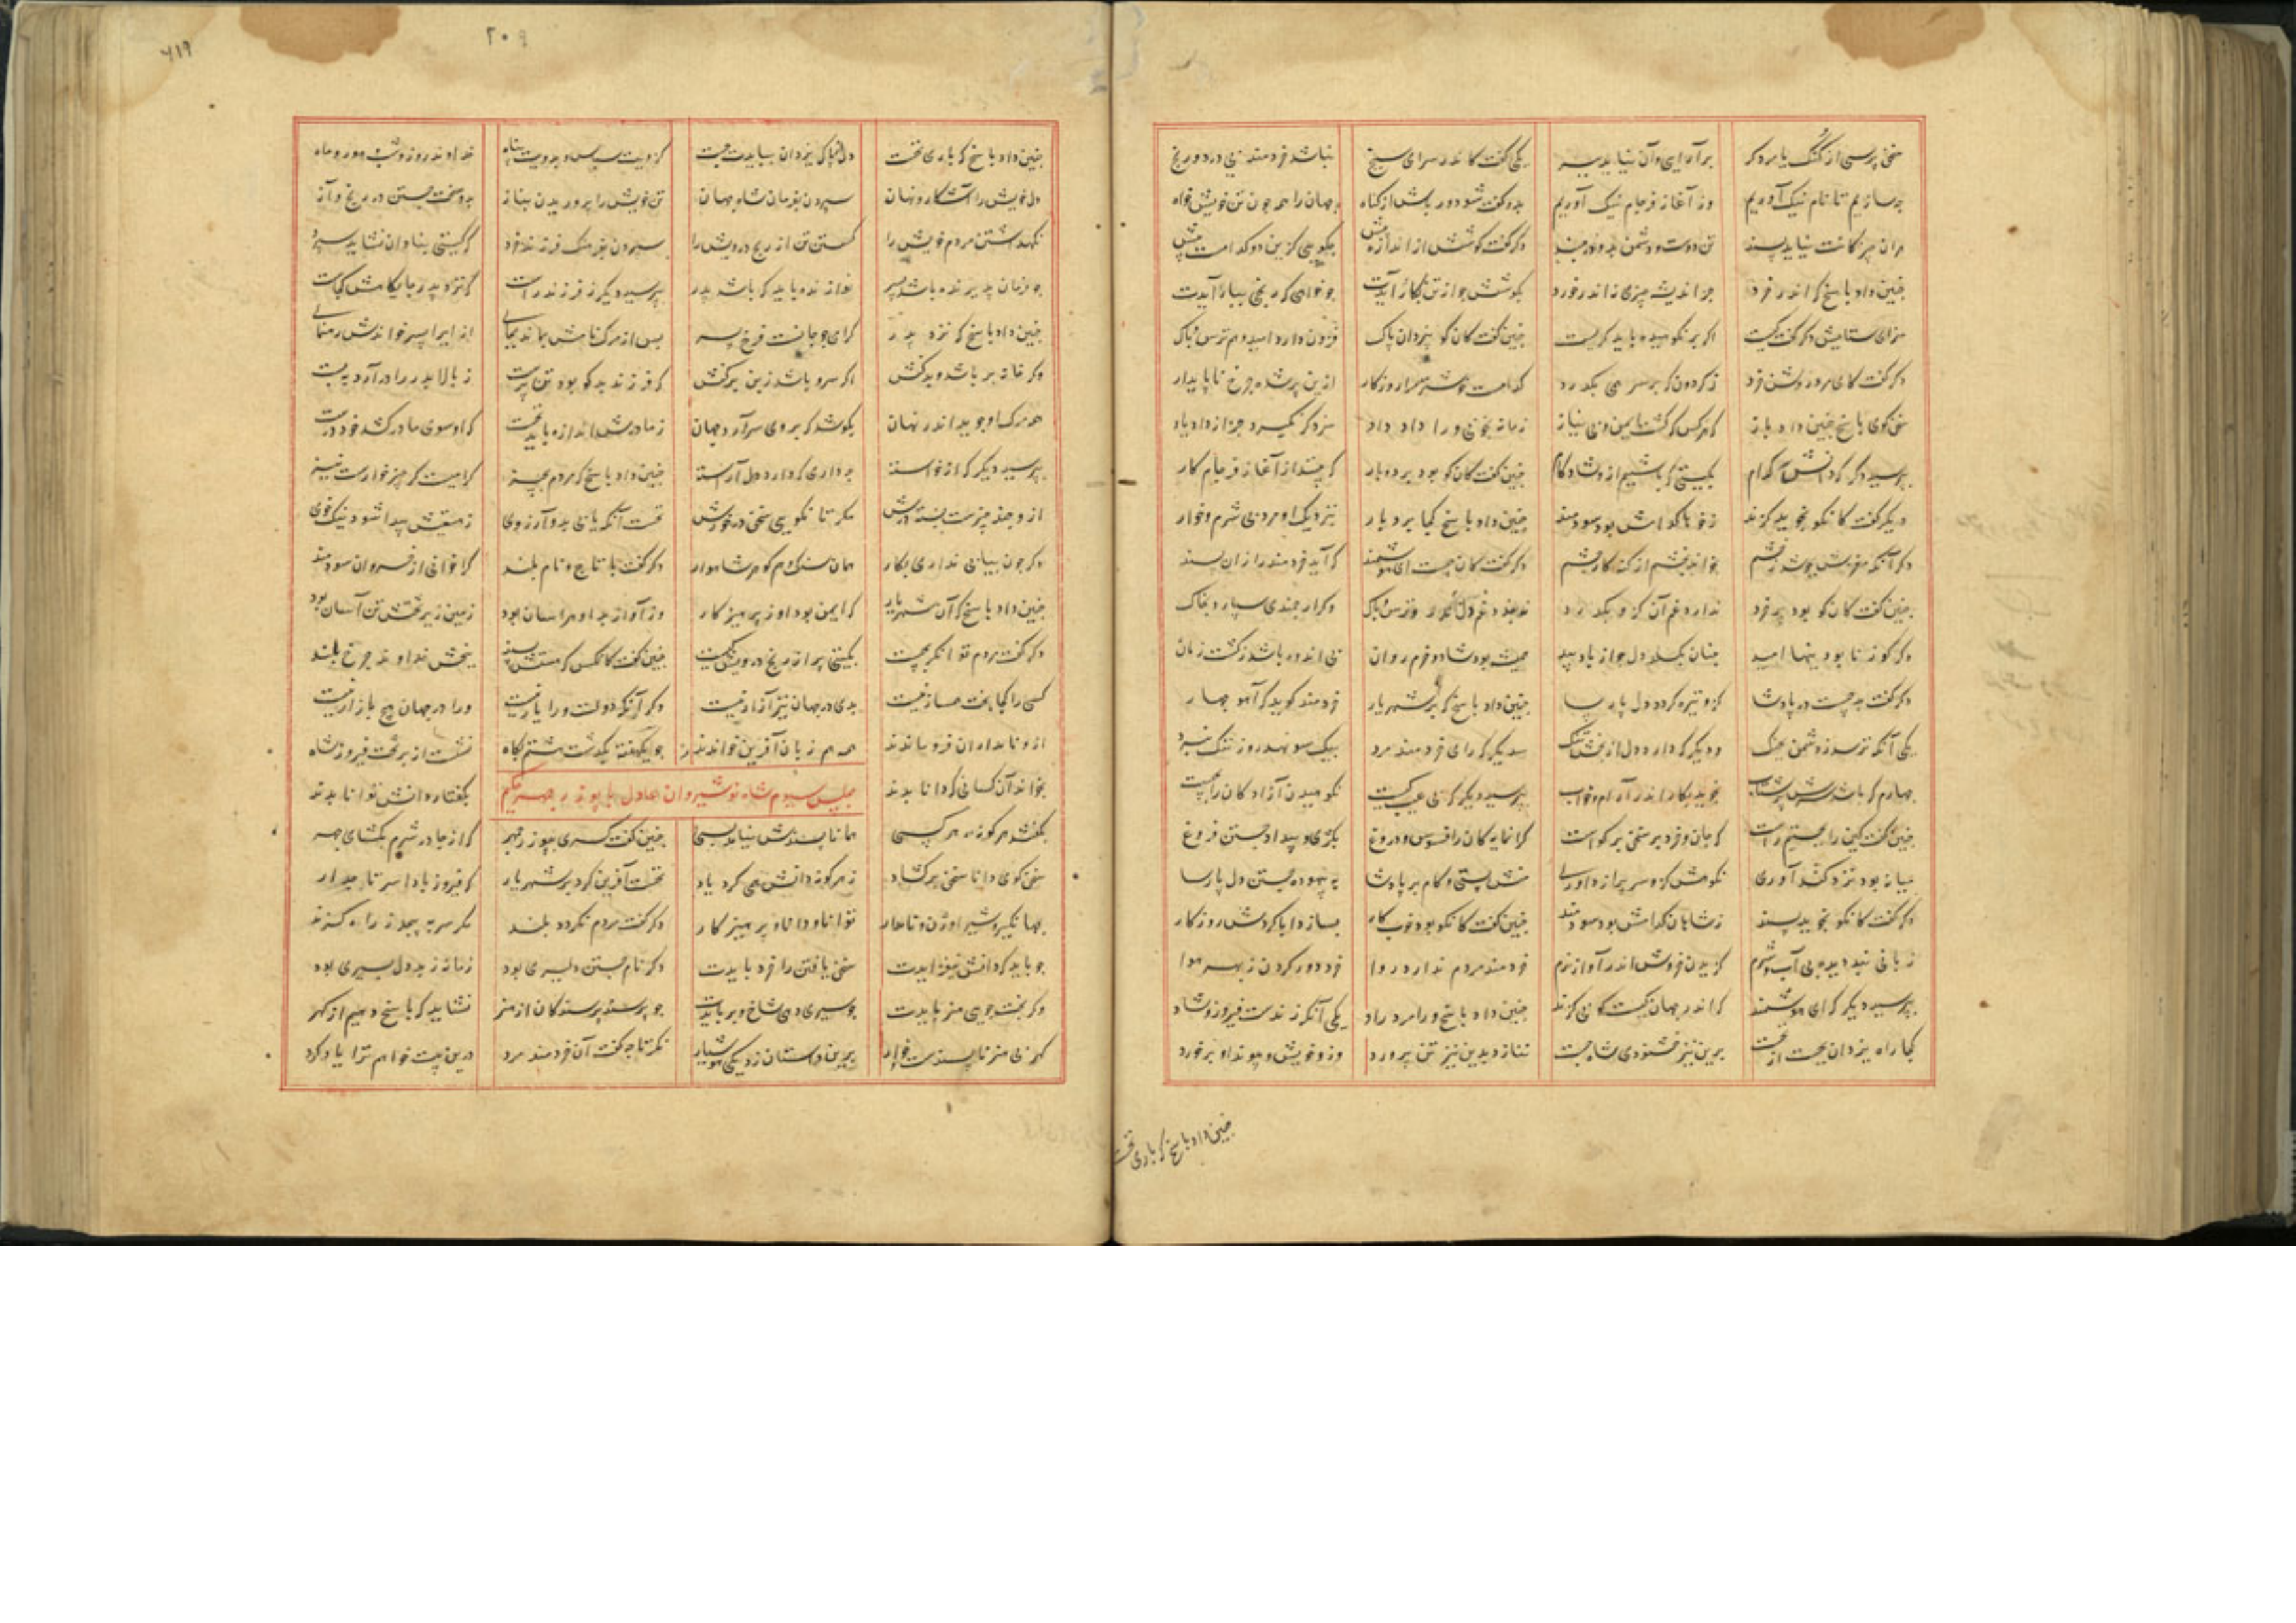 سخن پرسی از گنگ یا مرد کر برآرای وآن نیاید ببر یکی گفت کاندر سرای سپنج نباشد خردمند بی درد و رنج
چه سازیم تا نام نیک آوریم وز آغاز فرجام نیک آوریم بدو گفت شو دور باش از گناه جهان را همه چون تن خویش خواه
هران چیز کانت نیاید پسند تن دوست و دشمن بدو در مبند دگر گفت کوشش از اندازه بیش چگویی کزین دو کدامست پیش
چنین داد پاسخ که اندر خرد جز اندیشه چیزی نه اندر خورد بکوشش چو از تن بکار آیدت چو خواهی که رنجی ببار آیدت
سزای ستایش دگر گفت کیست اگر بر نکوهیده باید گریست چنین گفت کان کو بیزدان پاک فزون دارد امید و هم ترس و باک
دگر گفت کای مرد روشن خرد ز گردون که بر سر همی بگذرد کدامست خوشتر مرا روزگار ازین بر شده چرخ ناپایدار
سخن گوی پاسخ چنین داد باز که هر کس که گشت ایمن و بی نیاز زمانه بخوبی ورا داد داد سزد گر نگیرد جز از داد یاد
بپرسید دگر که دانش کدام بگیتی که باشیم ازو شادکام چنین گفت کان کو بود بردبار
دیگر گفت کانکو نجوید گزند ز خوها کدامش بود سودمند چنین داد پاسخ کجا بردبار بنزدیک او مرد بی شرم و خوار
دگر آنکه مغزش بجوشد ز خشم بخواند بخشم از گنه کار چشم دگر گفت کان چیست ای هوشمند که آید خردمند را زان پسند
چنین گفت کان کو بود پر خرد ندارد غم آن کزو بگذرد وگر ارجمندی سپارد بخاک
دگر کو ز نابودنیها امید چنان بگسلد دل چو از باد بید همیشه بود شاد و خرم روان بی اندوه باشد ز گشت زمان
دگر گفت بد چیست در پادشا کزو تیره گردد دل پارسا چنین داد پاسخ که بر شهریار خردمند گوید که آهو چهار
یکی آنکه ترسد ز دشمن بجنگ ودیگر که دارد دل از بخش تنگ سدیگر که رای خردمند مرد بیک سو نهد روز ننگ و نبرد
چهارم که باشد سرش پر شتاب نجوید بکار اندر آرام و خواب بپرسید دیگر که بی عیب کیست نکوهیدن آزادگان را بچیست
چنین گفت کین را ببخشیم راست که جان و خرد بر سخن بر گواست گرانمایه گان را فسوس و دروغ بکژی و بیداد جستن فروغ
میانه بود مرد کندآوری نکوهش کزو سر پر از داوری منش پستی و کام بر پادشا به بیهوده جستن دل پارسا
دگر گفت کانکو بجوید پسند ز شاهان کدامش بود سودمند چنین گفت کانکو بود خوب بسازد ابا گردش روزگار
زبانی دیده بی آب و شرم گزیدن خروش اندر آواز نرم خردمند مردم ندارد روا خرد دور کردن ز بهر هوا
بپرسید دیگر که ای هوشمند که اندر جهان کیست کو بی گزند چنین داد پاسخ ورا مرد راد یکی آنکه زندست فیروز و شاد
کجا راه یزدان بجست از نخست برین نیز خشنودی شاه جست ننازد بدین نیز تن پرورد وزو خویش و پیوند او برخورد
چنین داد پاسخ که باری نخست
۲۰۹
۶۱۹
چنین داد پاسخ که باری نخست دل پاک یزدان ببایدت جست کزویت سپاس و بدویت پناه خداوند روز و شب و هور و ماه
دل خویش را آشکار و نهان سپردن بفرمان شاه جهان تن خویش را پروریدن بناز بدو سخت جستن در رنج و آز
نگهداشتن مردم خویش را گسستن تن از رنج درویش را سپردن بفرهنگ فرزند خرد که گیتی بنادان نشاید سپرد
چو فرمان پذیرنده باشد پسر نوازنده باید که باشد پدر بپرسید دیگر ز فرزند راست که نزد پدر جایگاهش کجاست
چنین داد پاسخ که نزد پدر گرامی چو جانست فرخ پسر پس از مرگ نامش بماند بجای ازیرا پسر خواندش رهنمای
اگر سرو باشد زبن که فرزند بد کو بود تن پرست
هر آن کس او جوید اندر نهان بکوشد که بروی سرآرد جهان ز مادرش اندازه باید نخست که او سوی مادر کشد خود درست
بپرسید دیگر که از خواسته چه داری که دارد دل آراسته چنین داد پاسخ که مردم بچیز گرامیست گر چیز خوارست نیز
مگر تا نگویی سخن نخست آنکه یابی بدو آرزوی ز هستیش پیدا شود نیک خوی
دگر چون بیابی نداری بکار همان سنگ و هم گوهر شاهوار دگر گفت با تاج و نام بلند کرا خوانی از خسروان سودمند
چنین داد پاسخ که آن شهریار که ایمن بود او ز پرهیز کار وز آواز بد او هراسان بود زمین زیر تختش تن آسان بود
دگر گفت مردم توانگر بچیست بگیتی پر از رنج و درویش کیست چنین گفت کانکس که هستش پسند ببخش خداوند چرخ بلند
کسی را کجا بخت همساز نیست بدی در جهان بتر از آز نیست دگر آنکه دولت ورا یار نیست ورا در جهان هیچ بازار نیست
ازو نامداران فرو ماندند همه هم زبان آفرین خواندند چو یکهفته بگذشت هشتم پگاه نشست از بر تخت فیروز شاه
بخواند آن کسانی که دانا بدند مجلس سیوم شاه نوشیروان عادل با بوزرجمهر حکیم بگفتار و دانش توانا بدند
بگفتند هر گونه هر کسی همانا پسندش نیامد بسی چنین گفت کسری ببوزرجمهر که از چادر شرم بگشای چهر
سخن گوی دانا سخن برگشاد ز هر گونه دانش همی کرد یاد نخست آفرین کرد بر شهریار که فیروز بادا سر تاجدار
جهانگیر و شیر اوژن و نامدار توانا و دانا و پرهیز کار دگر گفت مردم نگردد بلند مگر سر بپیچد ز راه گزند
چو باید که دانش بیفزایدت سخن یافتن را خرد بایدت دگر نام جستن دلیری بود زمانه ز بددل بسیری بود
وگر تخت جویی هنر بایدت چو سبزی دهی شاخ و بر بایدت چو پرسند پرسندگان از هنر نشاید که پاسخ دهیم از گهر
گهر بی هنر ناپسندست خوار برین داستان زد یکی هوشیار نگر تا چه گفت آن خردمند مرد درین بیت خواهم ترا یاد کرد